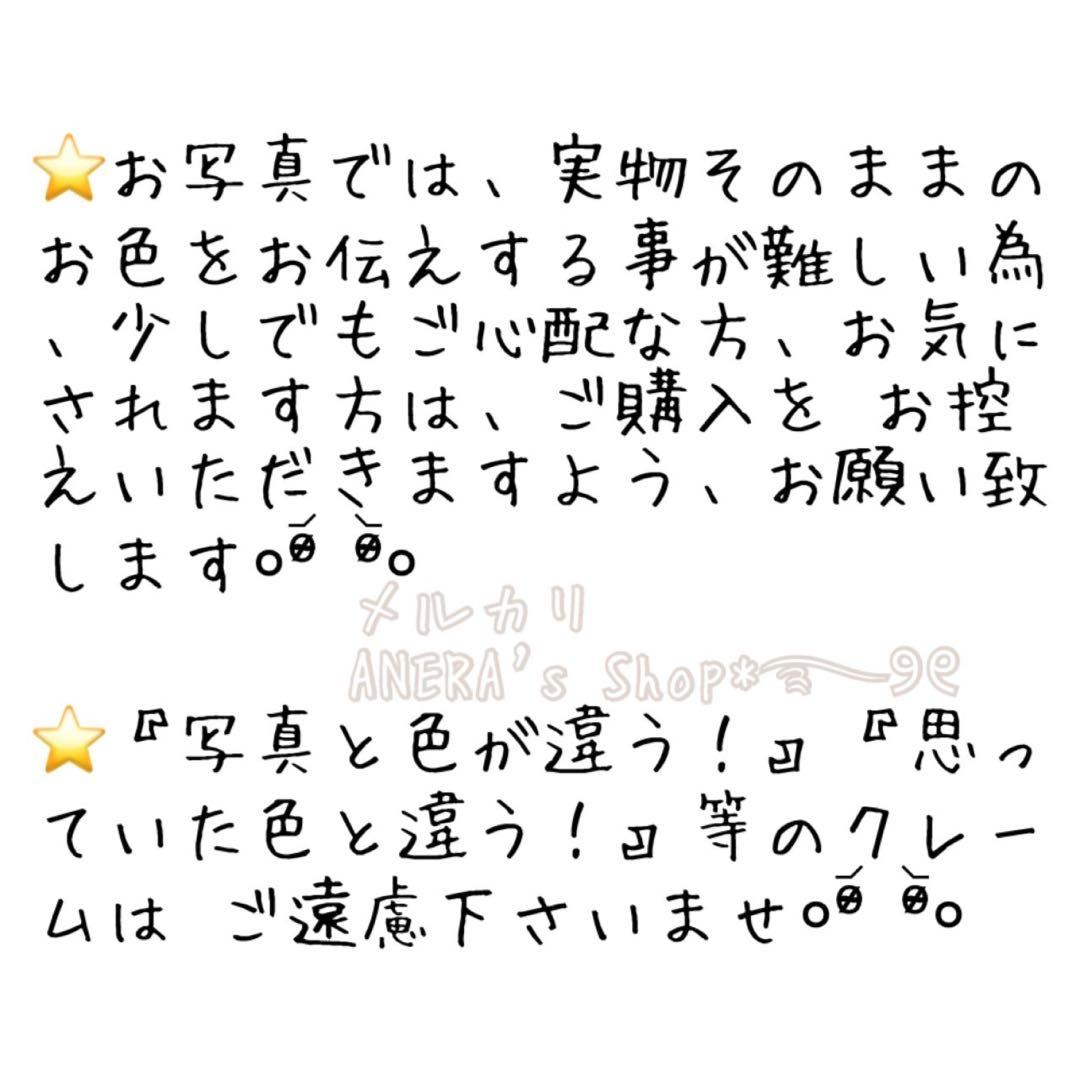 ⭐お写真では、実物そのままの
お色をお伝えする事が難しい為
、少しでもご心配な方、お気に
されます方は、ご購入を お控
えいただきますよう、お願い致
します
メルカリ
ANERA's Shop*
⭐『写真と色が違う!』『思っ
ていた色と違う!』等のクレー
ムは ご遠慮下さいませ